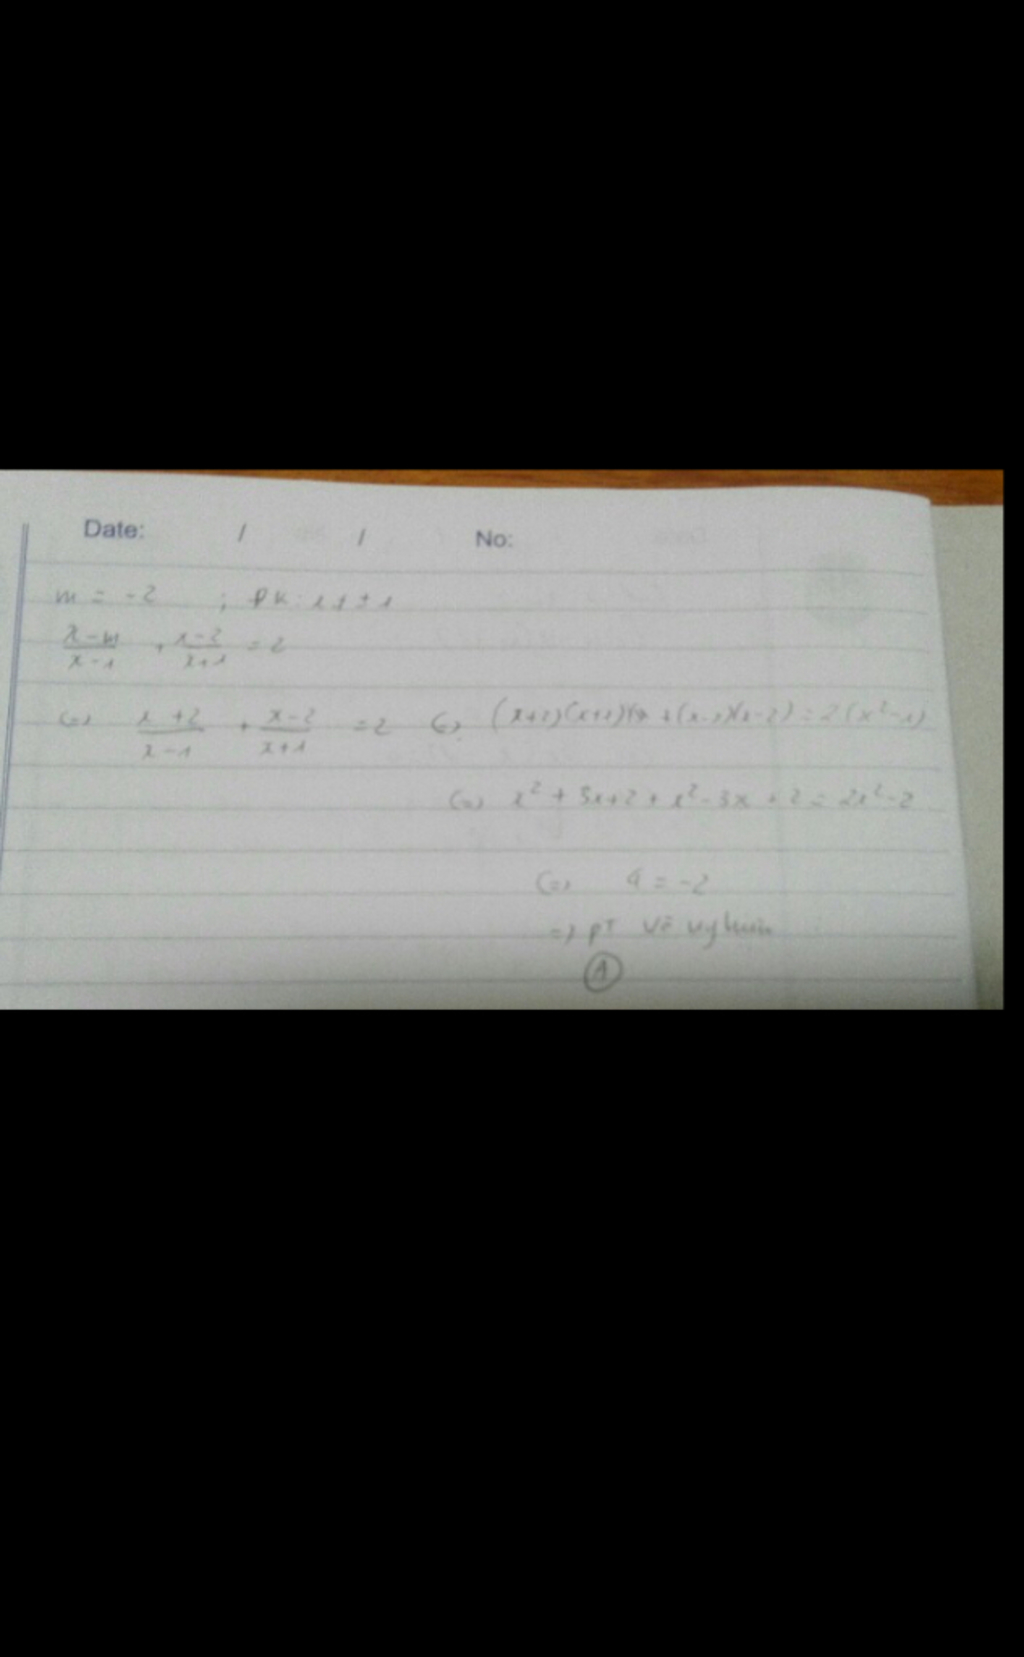 Date: / / No:
m = -2 ; ĐK: x ≠ ± 1
x-m/x-1 + x-2/x+1 = 2
(=) x+2/x-1 + x-2/x+1 = 2 (=) (x+2)(x+1) + (x-1)(x-2) = 2(x²-1)
(=) x² + 3x+2 + x² - 3x + 2 = 2x² - 2
(=) 4 = -2
=) PT vô nghiệm
A